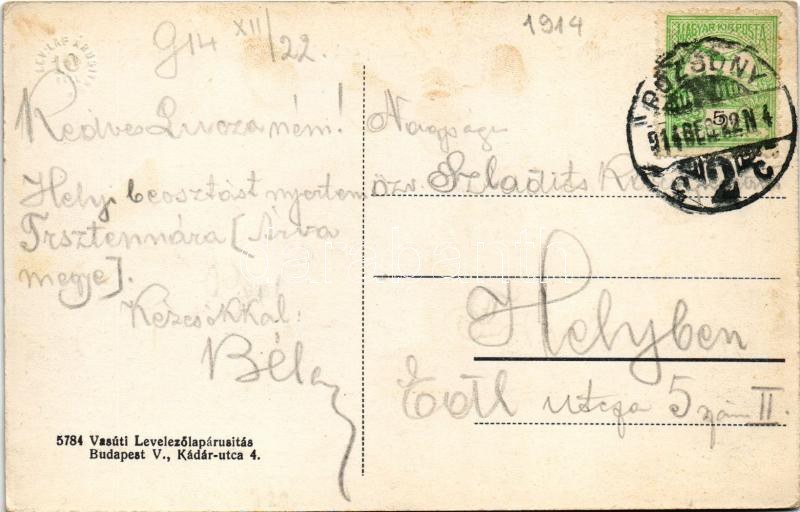 914 XII/22.
1914
MAGYAR KIR. POSTA
POZSONY
5
914 DEC. 22 N 4
2
Kedves
Hely beosztást nyertem
Trsztennára [Árva
megye].
Kézcsókkal:
Béla
Nagysága
özv. Szladits
Helyben
utcza 5 szám II.
5784 Vasúti Levelezőlapárusitás
Budapest V., Kádár-utca 4.